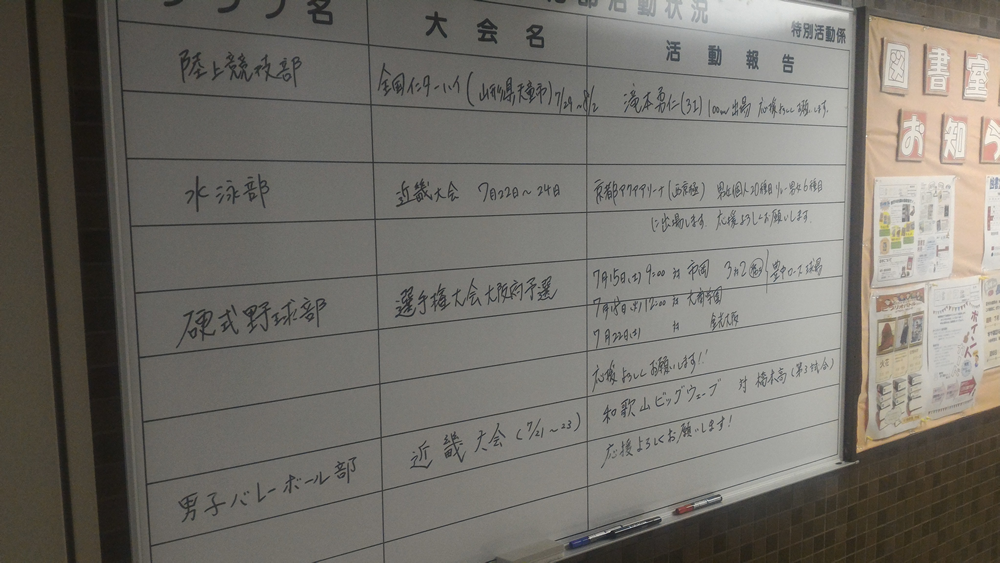 クラブ名
部活動状況
特別活動係
大会名
活動報告
陸上競技部
全国インターハイ(山形県天童市) 7/29~8/2
滝本勇仁(3I) 100m出場 応援よろしくお願いします。
水泳部
近畿大会 7月22日~24日
京都アクアアリーナ(西京極) 男女個人20種目 リレー男女6種目
に出場します。応援よろしくお願いします。
硬式野球部
選手権大会大阪府予選
7月15日(土) 9:00 対 市岡 3対2 豊中ローズ球場
7月19日(水) 対
7月22日(土) 対 金光大阪
応援よろしくお願いします!!
男子バレーボール部
近畿大会(7/21~23)
和歌山ビッグウェーブ 対 橋本高(第3試合)
応援よろしくお願いします!
図書室
お知ら